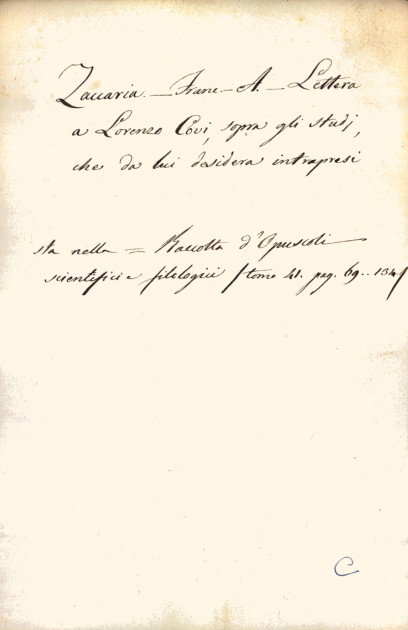 Zaccaria. — Franc. — A. — Lettera
a Lorenzo Covi, sopra gli studj,
che da lui desidera intrapresi
sta nella = Raccolta d'Opuscoli
scientifici e filologici / tomo 41. pag. 69..134 /
C